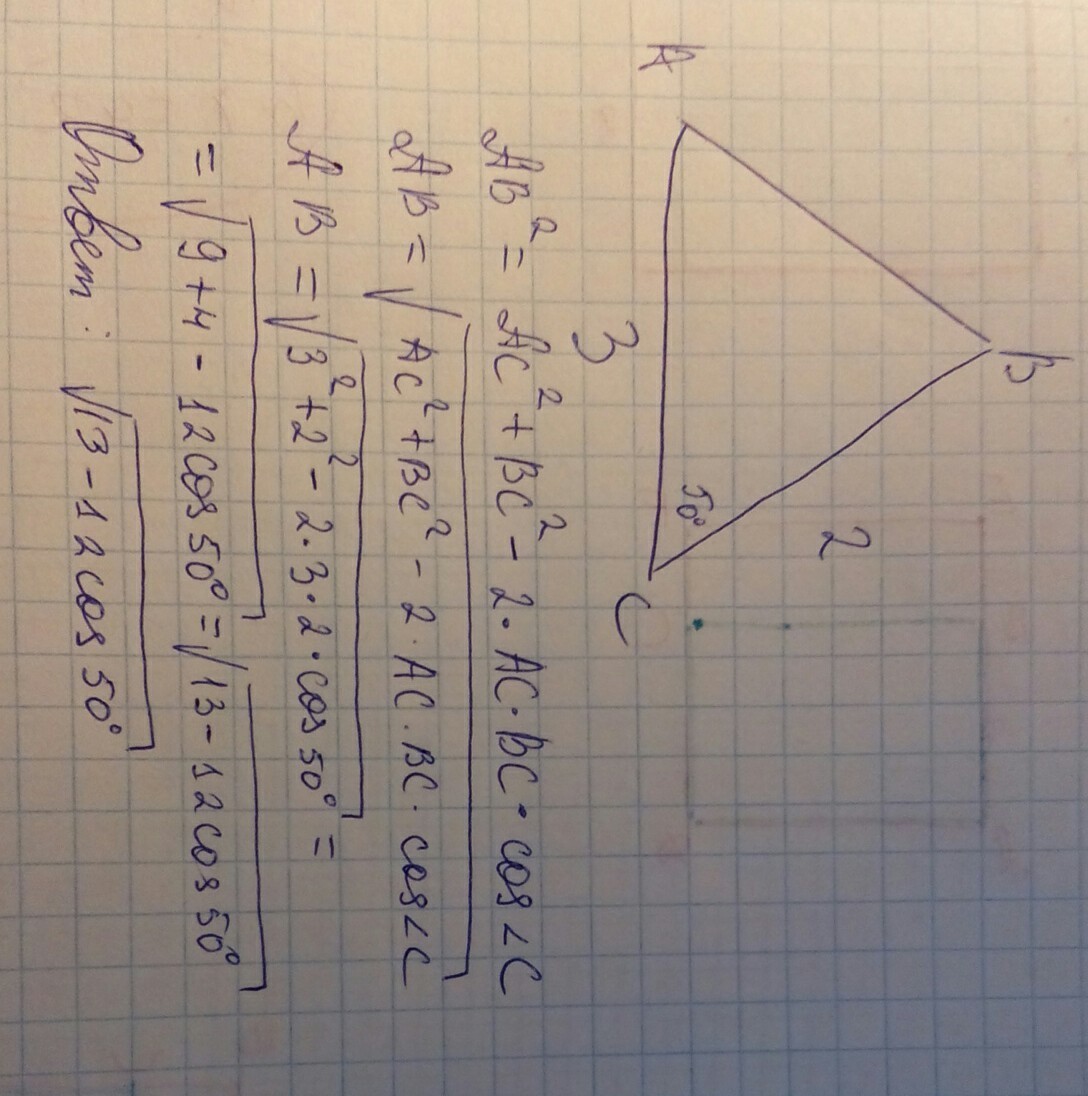 A
B
2
50°
C
3
AB² = AC² + BC² - 2·AC·BC·cos<C
AB = √AC²+BC² - 2·AC·BC·cos<C
AB = √3²+2² - 2·3·2·cos 50° =
= √9+4 - 12cos 50° = √13 - 12cos 50°
Ответ: √13 - 12cos 50°